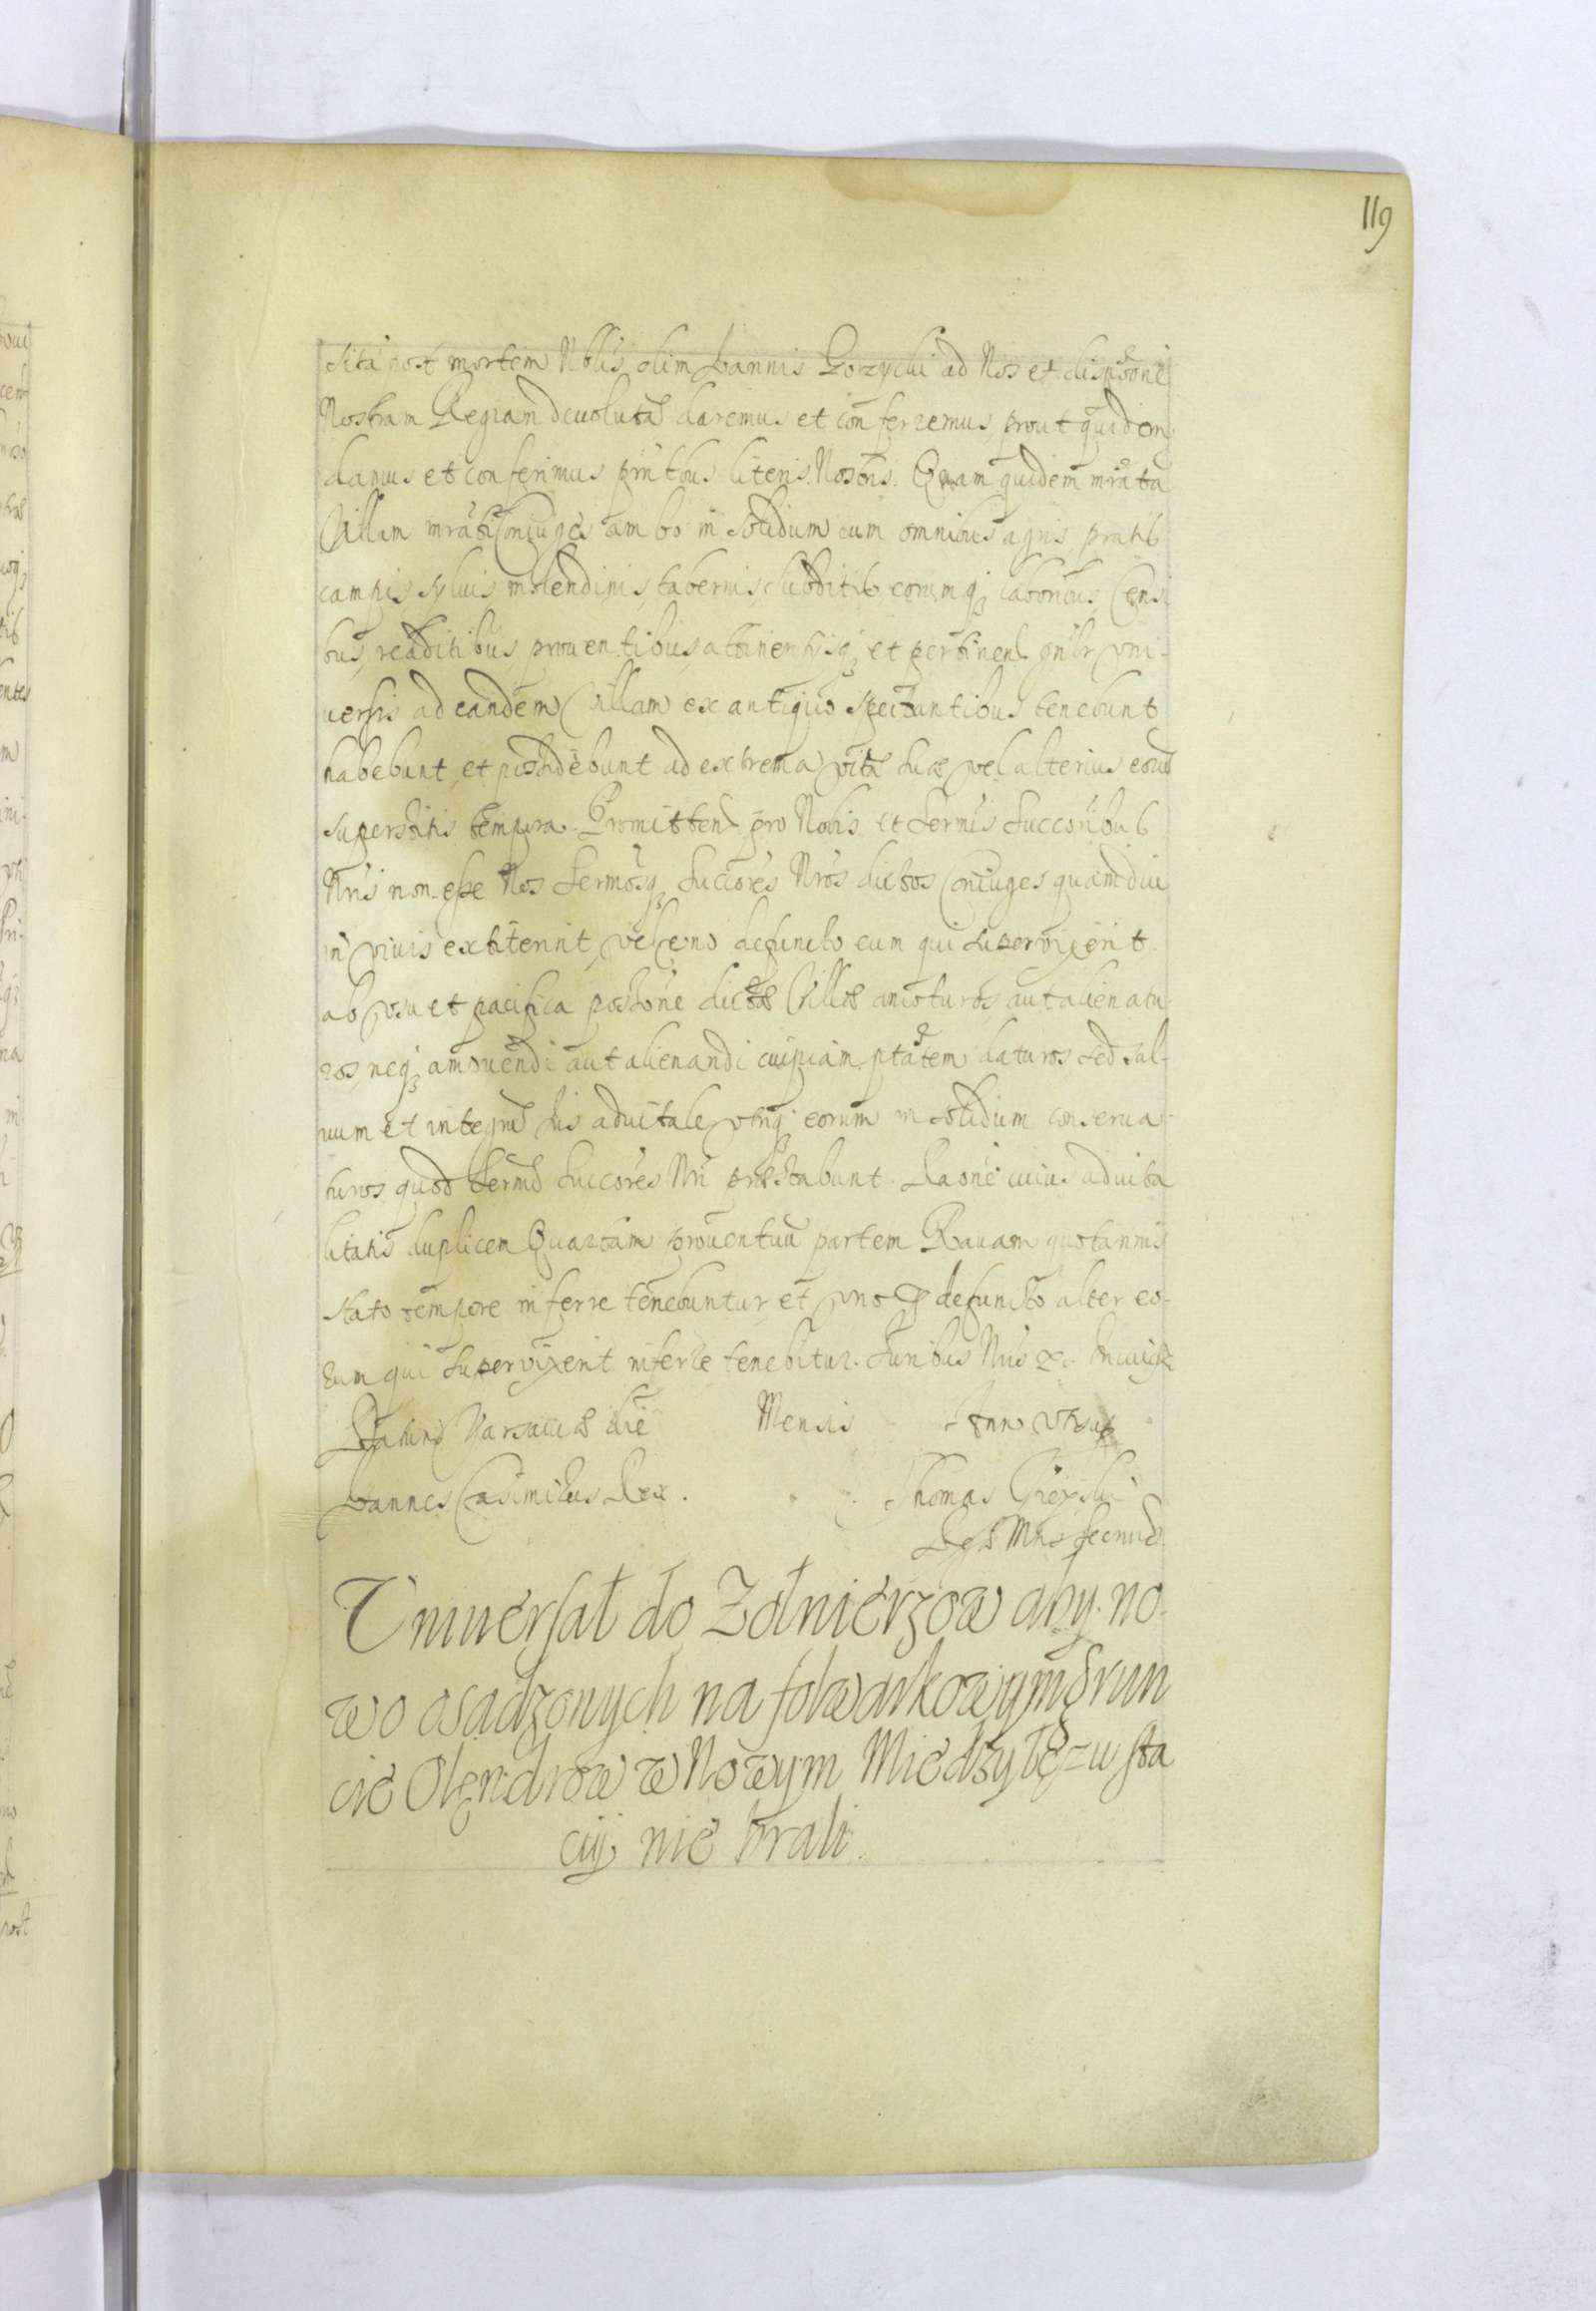 119
sitã post mortem Nblis olim Joannis Gorzycki ad Nos et dispoẽ
Nostram Regiam deuolutã daremus et conferremus prout quidem
damus et conferimus pñtbus literis Nostris. Quam quidem mrãtã
Villam mrãti Coniuges ambo in solidum cum omnibus agris pratis
campis syluis, molendinis, tabernis, subditis eorumq₃ laboribus, Censi
bus, redditibus, prouentibus, attinentijsq₃ et pertinen. gñlr vni-
uersis ad eandem Villam ex antiquo spectantibus tenebunt
habebunt et possidebunt ad extrema vitæ suæ vel alterius eorũ
superstitis tempora. Promitten. pro Nobis et Sermis Succoribus
Nris non esse Nos Sermosq₃ Succores Nros dictos Coniuges quamdiu
in viuis extiterint, vel eno defuncto eum qui superuixerit
ab vsu et pacifica possõne dictæ Villæ amoturos, aut alienatu-
ros, neq₃ amouendi aut alienandi cuipiam ptãtem daturos sed sal-
uum et integrũ Jus aduitale vtriq₃ eorum in solidum conserua-
turos quod Sermi Succores Nri præstabunt. Raone cuius aduita
litatis duplicem Quartam prouentuũ partem Rauam quotannis
stato tempore inferre tenebuntur et vno defuncto alter eo-
rum qui superuixerit inferre tenebitur. Juribus Nris &c. In cuius
Datum Varsauiæ die Mensis Anno vt supra
Joannes Casimirus Rex. Thomas
Rgæ Mtis Secrius
Vniuersał do Zołnierzow aby no-
wo osadzonych na folwarkowym grun
cie Olendrow w Nowym Miedzyłężu sta
cij nie brali.